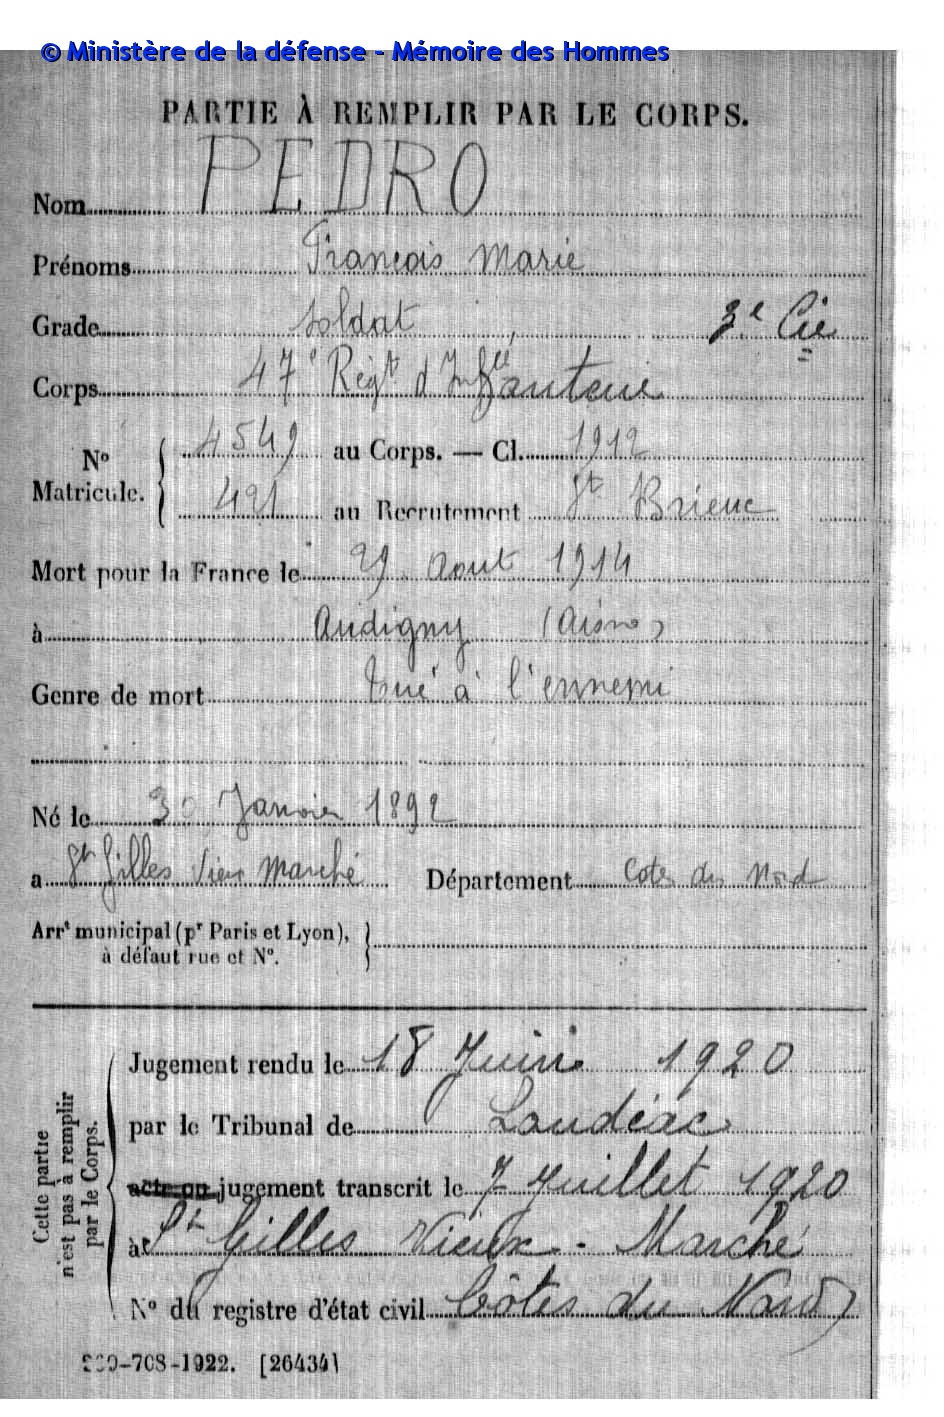 © Ministère de la défense - Mémoire des Hommes
PARTIE À REMPLIR PAR LE CORPS.
Nom PEDRO
Prénoms François Marie
Grade Soldat 3e Cie
Corps 47e Régt d'Infanterie
No Matricule. 4549 au Corps. — Cl. 1912
491 au Recrutement St Brieuc
Mort pour la France le 29 Aout 1914
à Audigny (Aisne)
Genre de mort tué à l'ennemi
Né le 30 Janvier 1892
a St Gilles Vieux Marché Département Cotes du Nord
Arrt municipal (pr Paris et Lyon),
à défaut rue et No.
Cette partie n'est pas à remplir par le Corps.
Jugement rendu le 18 Juin 1920
par le Tribunal de Loudéac
acte ou jugement transcrit le 7 Juillet 1920
à St Gilles Vieux-Marché
No du registre d'état civil Côtes du Nord)
-708-1922. [26434]